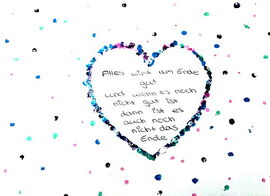 Alles wird am Ende
gut
und wenn es noch
nicht gut ist
dann ist es
auch noch
nicht das
Ende